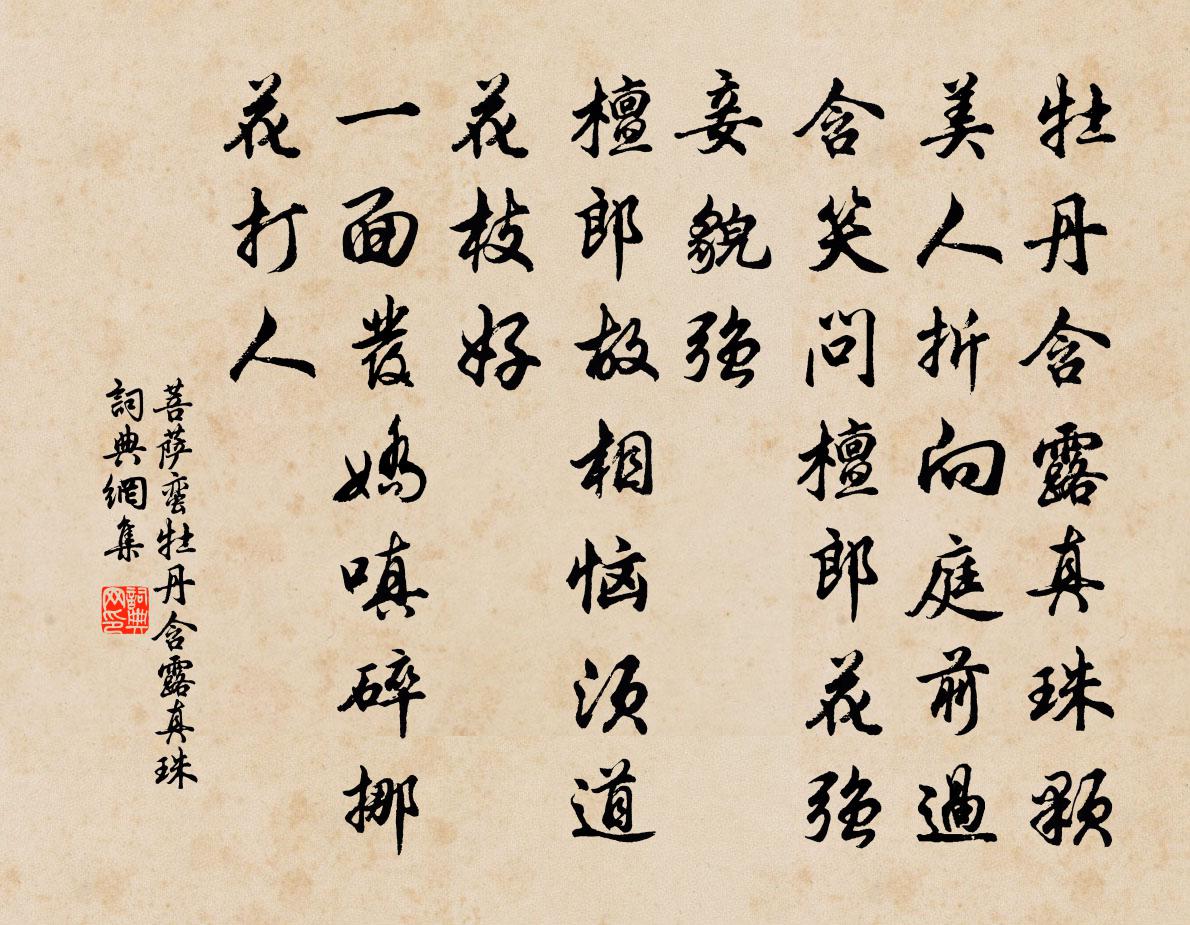 牡丹含露真珠顆
美人折向庭前過
含笑問檀郎花强
妾貌强
檀郎故相恼須道
花枝好
一面發嬌嗔碎挪
花打人
菩萨蛮牡丹含露真珠
詞典網集
詞典网印